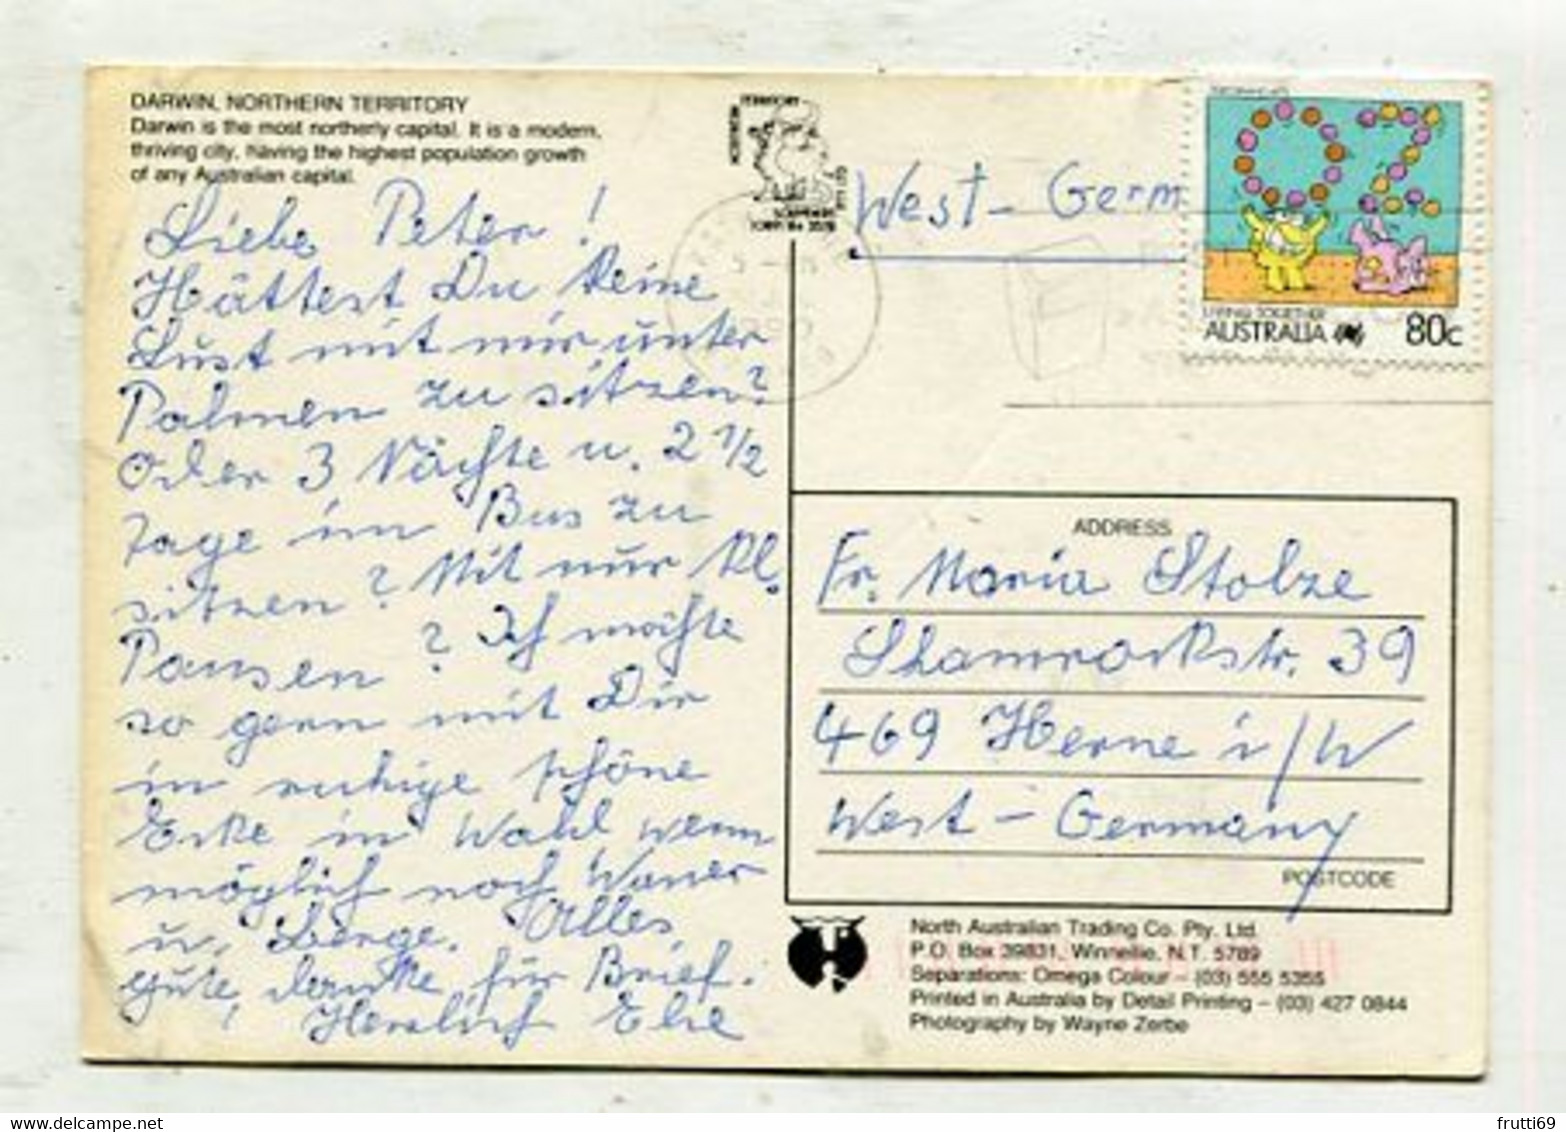 DARWIN, NORTHERN TERRITORY
Darwin is the most northerly capital. It is a modern,
thriving city, having the highest population growth
of any Australian capital.
Liebe Peter!
Hättest Du keine
Lust mit mir unter
Palmen zu sitzen?
Oder 3 Nächte u. 2 1/2
Tage im Bus zu
sitzen? Mit nur kl.
Pausen? Ich möchte
so gern mit Dir
in ruhige schöne
Ecke in Wahl wenn
möglich noch Wasser
u. Berge. Alles
gute, danke für Brief.
Herzlich
NORTHERN
TERRITORY
SOUVENIRS
PTY LTD
West-Germ
LIVING TOGETHER
AUSTRALIA 80c
ADDRESS
Fr. Maria Stolze
Shamrockstr. 39
469 Herne i/W
West-Germany
POSTCODE
North Australian Trading Co. Pty. Ltd.
P.O. Box 39831, Winnellie, N.T. 5789
Separations: Omega Colour – (03) 555 5355
Printed in Australia by Detail Printing – (03) 427 0844
Photography by Wayne Zerbe
frutti69